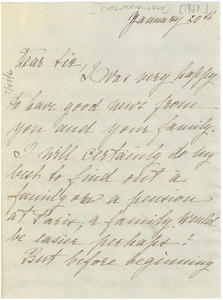 [CALMAN-LEVY] [1927]
January 20th
Dear Sir,
I was very happy
to have good news from
you and your family.
I will certainly do my
best to find out a
family or a pension
at Paris, a family would
be easier perhaps?
But before beginning